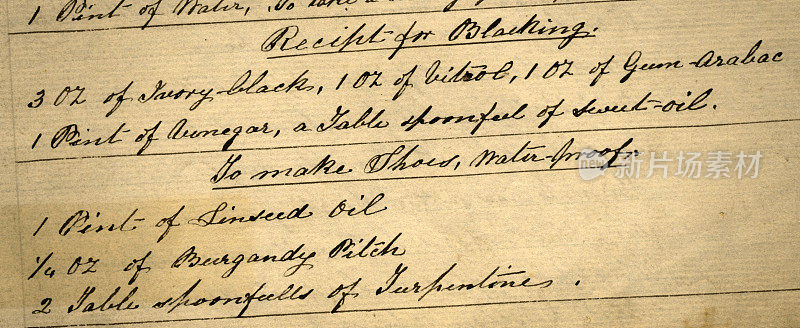 1 Pint of Water, To take a
Recipt for Blacking.
3 oz of Ivory-black, 1 oz of Vitrol, 1 oz of Gum-Arabac
1 Pint of Vinegar, a Table spoonful of sweet-oil.
To make Shoes, Water-proof.
新片场素材
1 Pint of Linseed Oil
1/4 oz of Burgandy Pitch
2 Table spoonfulls of Turpentine.